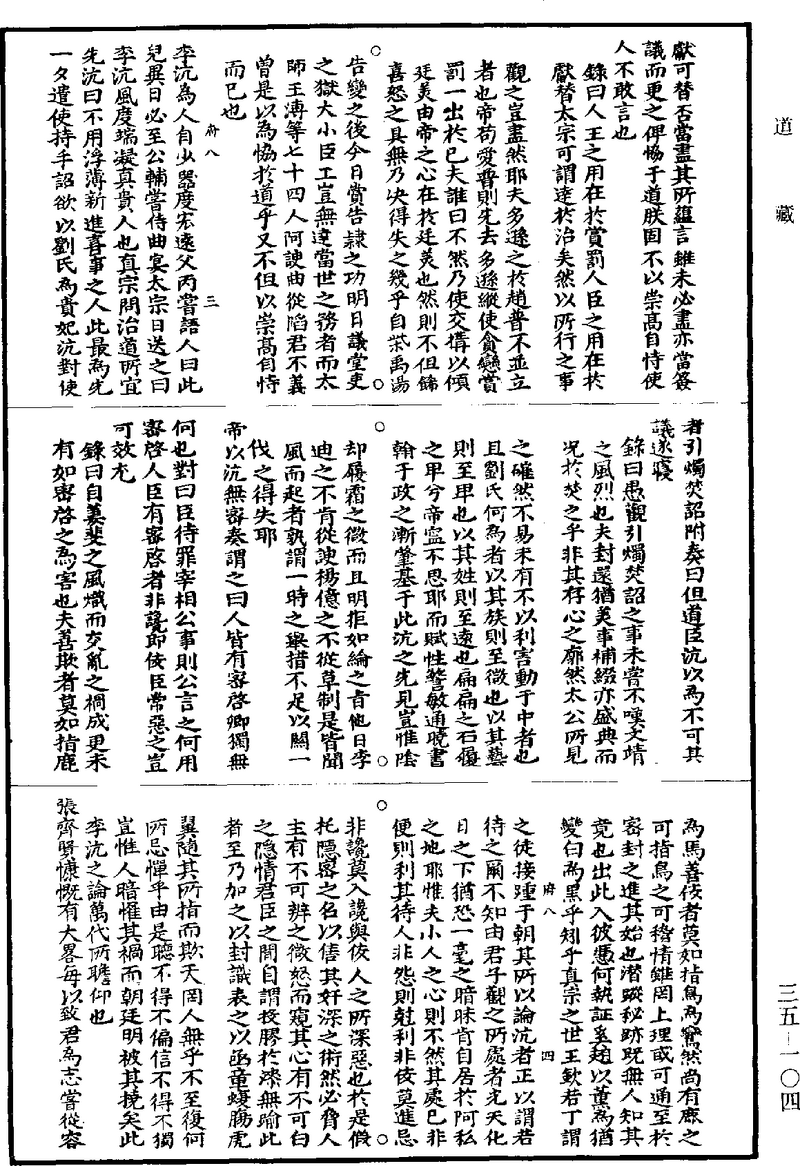 道藏
獻可替否當盡其所蘊言雖未必盡亦當僉
議而更之俾恊于道朕固不以崇高自恃使
人不敢言也
錄曰人王之用在於賞罰人臣之用在於
獻替太宗可謂達於治矣然以所行之事
觀之豈盡然耶夫多遜之於趙普不並立
者也帝苟愛普則先去多遜縱使貪戀賞
罰一出於巳夫誰曰不然乃使交搆以傾
廷美由帝之心在於廷美也然則不但飾
喜怒之具無乃决得失之幾乎自茶禹湯
告變之後今日賞告隷之功明日議堂吏
之獄大小臣工豈無達當世之務者而太
師王溥等七十四人阿諛曲從䧟君不義
曾是以為恊於道乎又不但以崇高自恃
而已也
府八
三
李沆為人自少器度宏遠父丙嘗語人曰此
兒異日必至公輔嘗侍曲宴太宗目送之曰
李沆風度端凝真貴人也真宗問治道所宜
先沆曰不用浮薄新進喜事之人此最為先
一夕遣使持手詔欲以劉氏為貴妃沆對使
者引燭焚詔附奏曰但道臣沆以為不可其
議遂寢
錄曰愚觀引燭焚詔之事未嘗不嘆文靖
之風烈也夫封還猶美事補綴亦盛典而
况於焚之乎非其存心之廓然太公所見
之確然不易未有不以利害動于中者也
且劉氏何為者以其族則至微也以其藝
則至卑也以其姓則至遠也扁扁之石履
之卑兮帝寧不思耶而賦性警敏通曉書
翰于政之漸肇基于此沆之先見豈惟陰
却履霜之微而且明拒如綸之旨他日李
迪之不肯從諛楊億之不從草制是皆聞
風而起者孰謂一時之舉措不足以關一
伐之得失耶
帝以沆無密奏謂之曰人皆有密啓卿獨無
何也對曰臣待罪宰相公事則公言之何用
密啓人臣有密啓者非讒即佞臣常惡之豈
可效尤
錄曰自萋斐之風熾而交亂之禍成更未
有如密啓之為害也夫善欺者莫如指鹿
為馬善佞者莫如指鳥為鸞然尚有鹿之
可指鳥之可稽情雖罔上理或可通至於
密封之進其始也潜蹤秘跡既無人知其
竟也出此入彼憑何執証奚趐以董為猶
變白為黑乎矧乎真宗之世王欽若丁謂
府八
四
之徒接踵于朝其所以論沆者正以謂若
待之爾不知由君子觀之所處者光天化
日之下猶恐一毫之暗昧肯自居於阿私
之地耶惟夫小人之心則不然其處巳非
便則利其待人非怨則尅利非佞莫進忌
非讒莫入讒與佞人之所深惡也於是假
托隱密之名以售其奸深之術然必脅人
主有不可辨之微怒而窺其心有不可白
之隱情君臣之間自謂投膠於漆無喻此
者至乃加之以封識表之以函童蝮腸虎
翼隨其所指而欺天罔人無乎不至復何
所忌憚乎由是聽不得不偏信不得不獨
豈惟人暗罹其禍而朝廷明被其撓矣此
李沆之論萬代所瞻仰也
張齊賢慷慨有大畧每以致君為志嘗從容
三五-一〇四